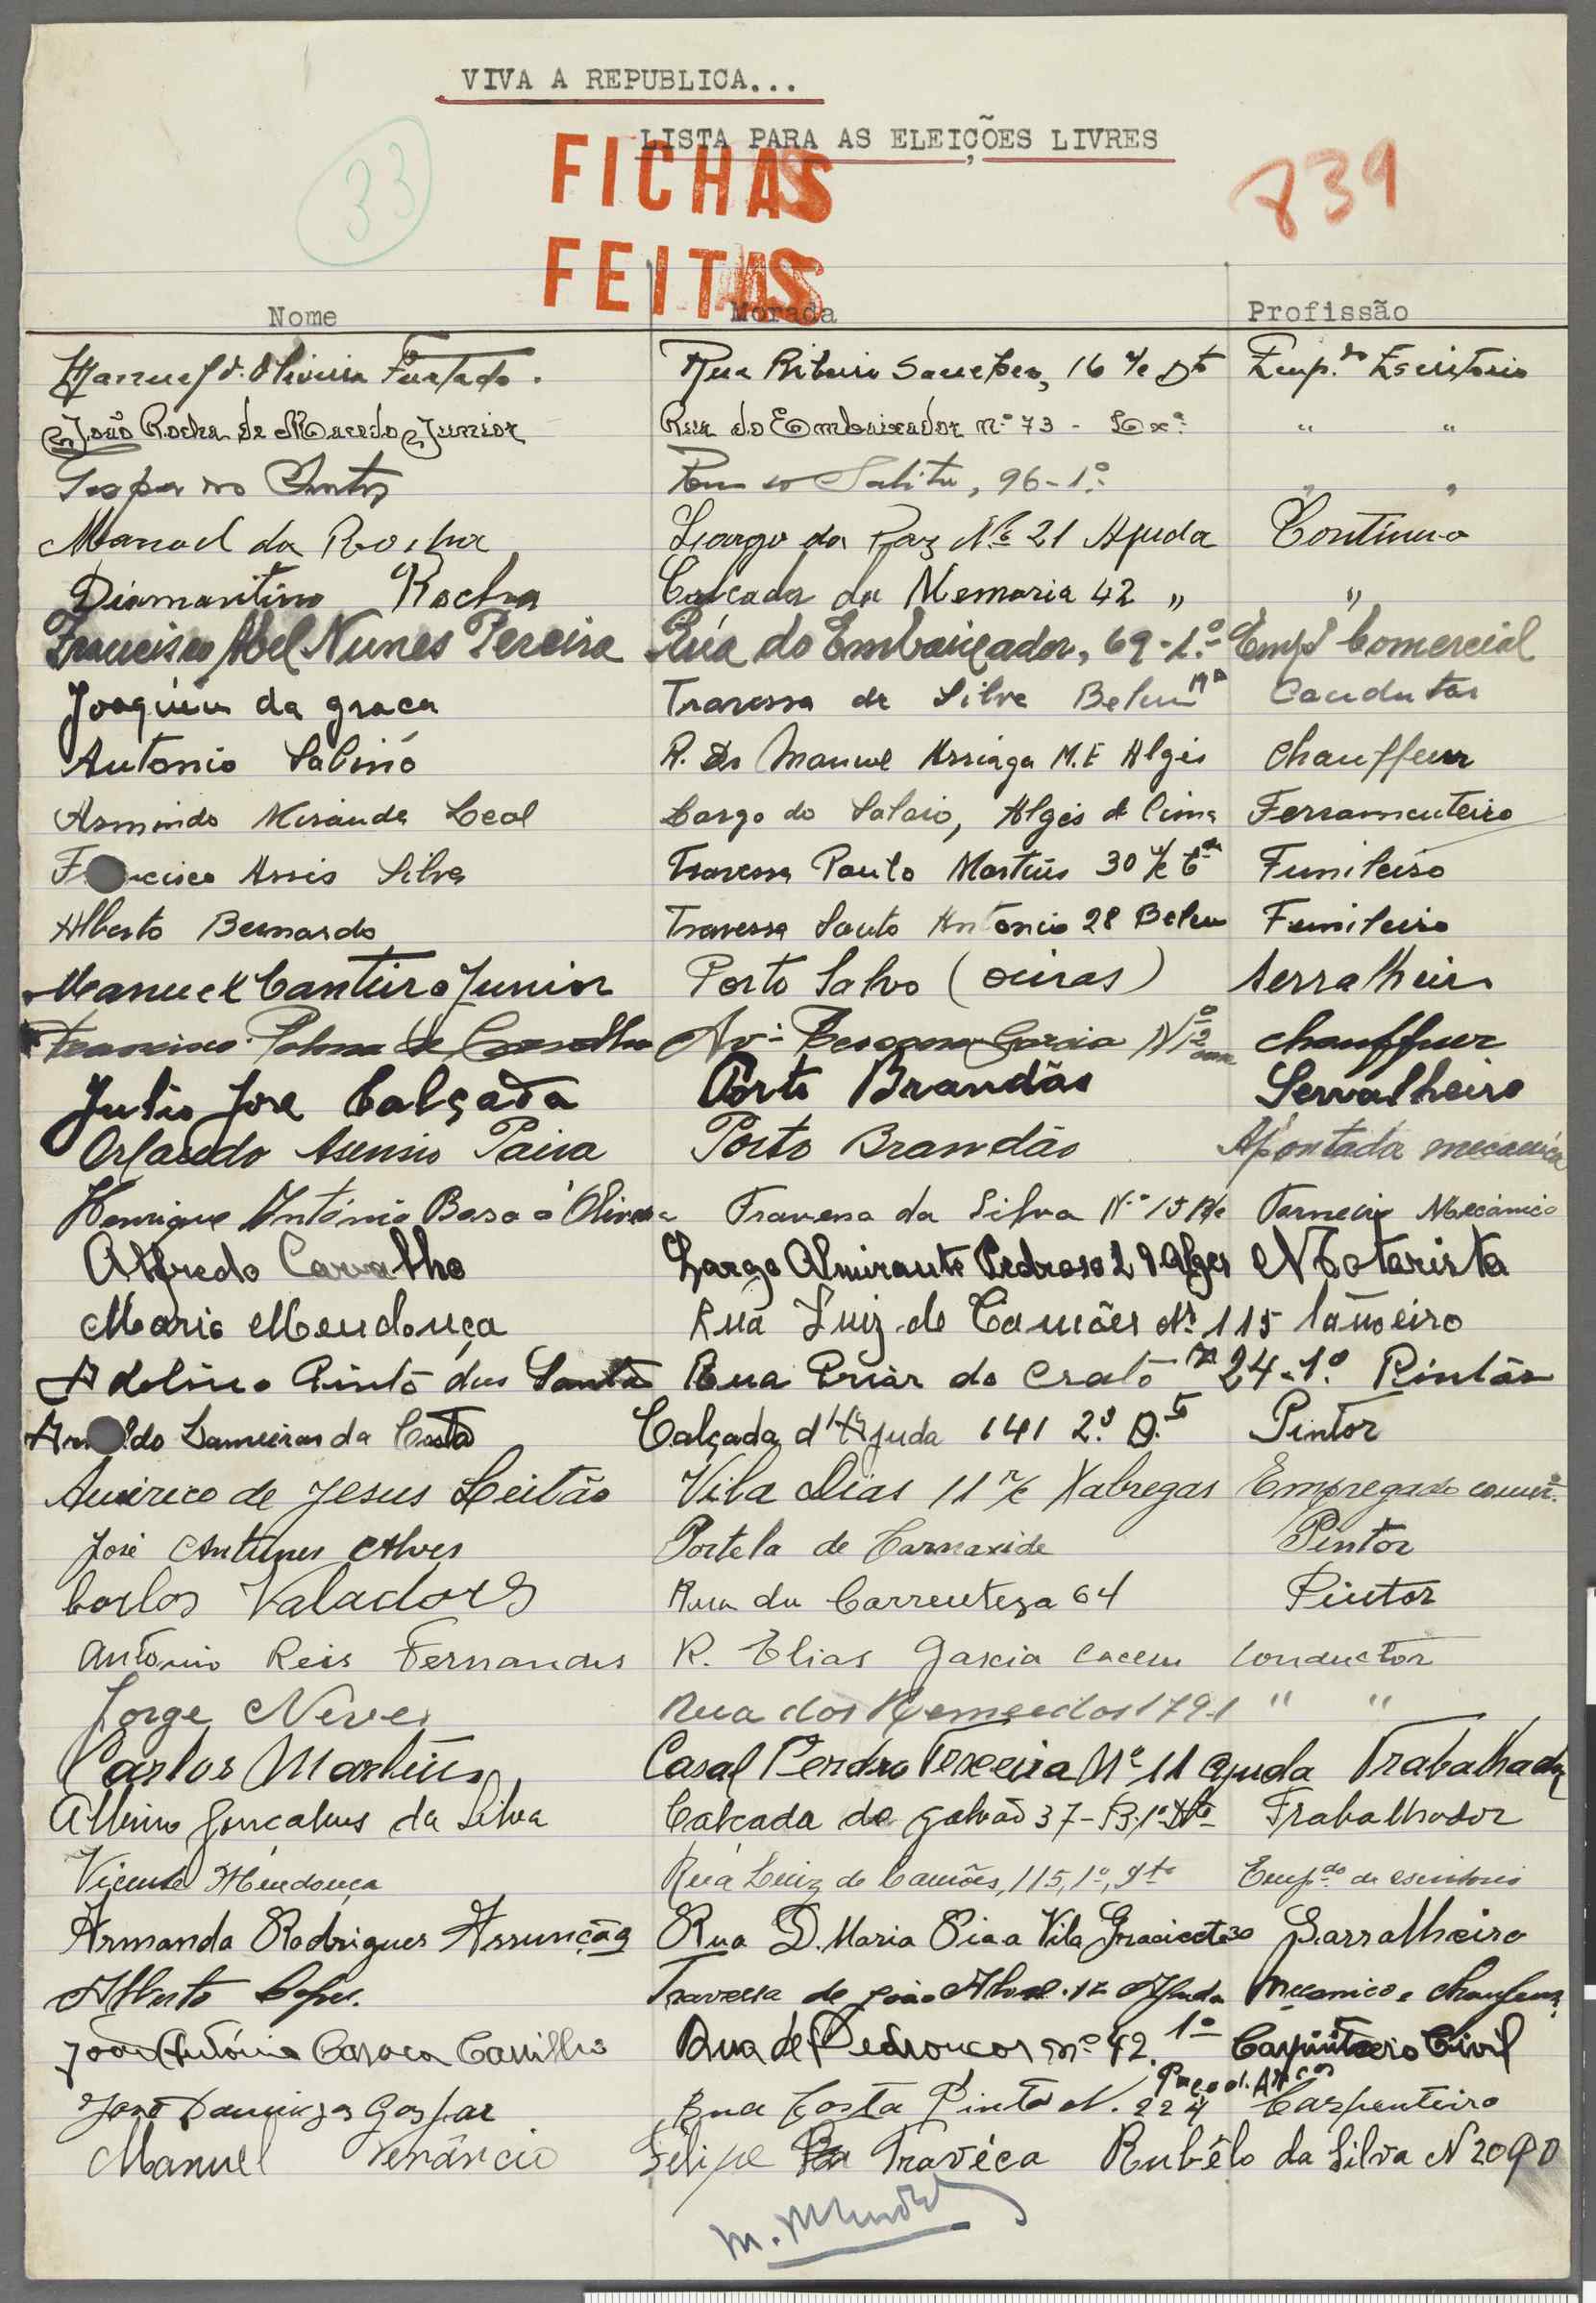 VIVA A REPUBLICA...
LISTA PARA AS ELEIÇÕES LIVRES
33
FICHAS
839
FEITAS
Nome Morada Profissão
Manuel d. Oliveira Furtado. Rua Ribeiro Sanches, 16 r/c Dto Emp. do Escritorio
João Rocha de Macedo Junior Rua do Embaixador nº 73 - Lxª " "
Rua do Salitre, 96-1º " "
Manoel da Rocha Largo da Paz Nº 21 Ajuda Contínuo
Diamantino Rocha Calcada da Memoria 42 " "
Francisco Abel Nunes Pereira Rúa do Embaixador, 69-1º Empº Comercial
Joaquim da graca Travessa da Silva Belem Condutor
Antonio Sabino R. Dr Manuel Arriaga M.F Algés chauffeur
Armindo Miranda Leal Largo do Salaio, Algés de Cima Ferramenteiro
Francisco Assis Silva Travessa Paulo Martins 30 r/c Funileiro
Alberto Bernardo Travessa Santo Antonio 28 Belem Funileiro
Manuel Canteiro Junior Porto Salvo (oeiras) Serralheiro
Francisco Palma de Carvalho Garcia chauffuer
Julio José Calçada Porto Brandão Serralheiro
Orlando Asensio Paiva Porto Brandão Apontada mecanica
Henrique António Travessa da Silva Nº 15 R/c Torneiro Mecánico
Alfredo Carvalho Largo Almirante Pedroso 29 Alges Motorista
Mario Mendonça Rua Luiz de Camões Nº 115 Tanoeiro
Adelino Pinto dos Santos Rua Prior do Crato nº 24-1º Pintôr
Arnaldo Lameiras da Costa Calçada d'Ajuda 141 2º D.to Pintor
Américo de Jesus Leitão Vila Dias 11 r/c Xabregas Empregado comer.
José Antunes Alves Portela de Carnaxide Pintor
Carlos Valadores Rua da Correnteza 64 Pintor
Antonio Reis Fernandes R. Elias Garcia Cacem Conductor
Jorge Neves Rua dos Remedos 179-1 " "
Carlos Martins Casal Perdro Texeira Nº 11 Ajuda Trabalhador
Albino Goncalves da Silva Calcada do galvão 37-B.1º Dto Trabalhador
Vicente Mendonça Rua Luiz de Camões, 115, 1º, Empdo de escritorio
Armando Rodrigues Assunção Rua D. Maria Pia a Vila 30 Sarralheiro
Alberto Lopes. Travessa de João Alves 12 Ajuda Mecanico e
João António Caroca Carrilho Rua de Pedroucos nº 42. 1º Carpinteiro Civil
José Domingos Gaspar Rua Costa Pinto N. 224 Paço d. Arcos Carpenteiro
Manuel Venâncio Felipe Travéca Rubêlo da Silva N 20